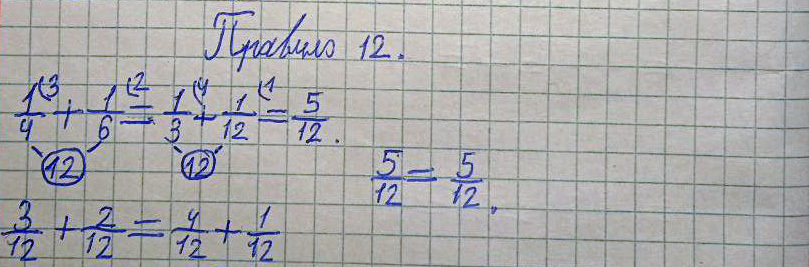 Правило 12.
1/4 (3 + 1/6 (2 = 1/3 (4 + 1/12 (1 = 5/12.
12 12
5/12 = 5/12.
3/12 + 2/12 = 4/12 + 1/12